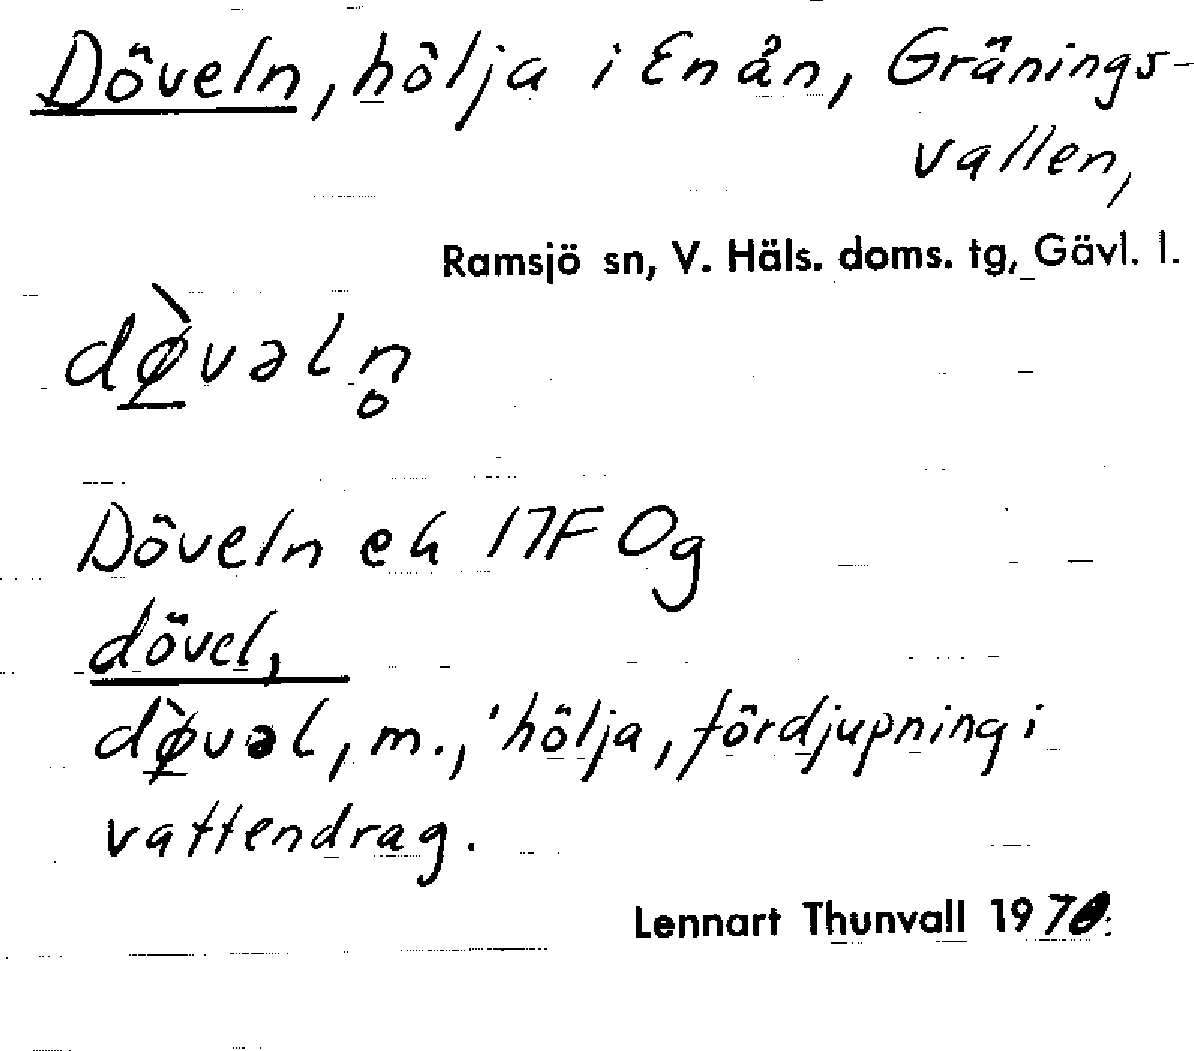 Döveln, hölja i Enån, Gränings-
vallen,
Ramsjö sn, V. Häls. doms. tg, Gävl. l.
dø̀vəln̥
Döveln ek 17F 0g
dövel,
dø̀vəl, m., 'hölja, fördjupning i
vattendrag.
Lennart Thunvall 197